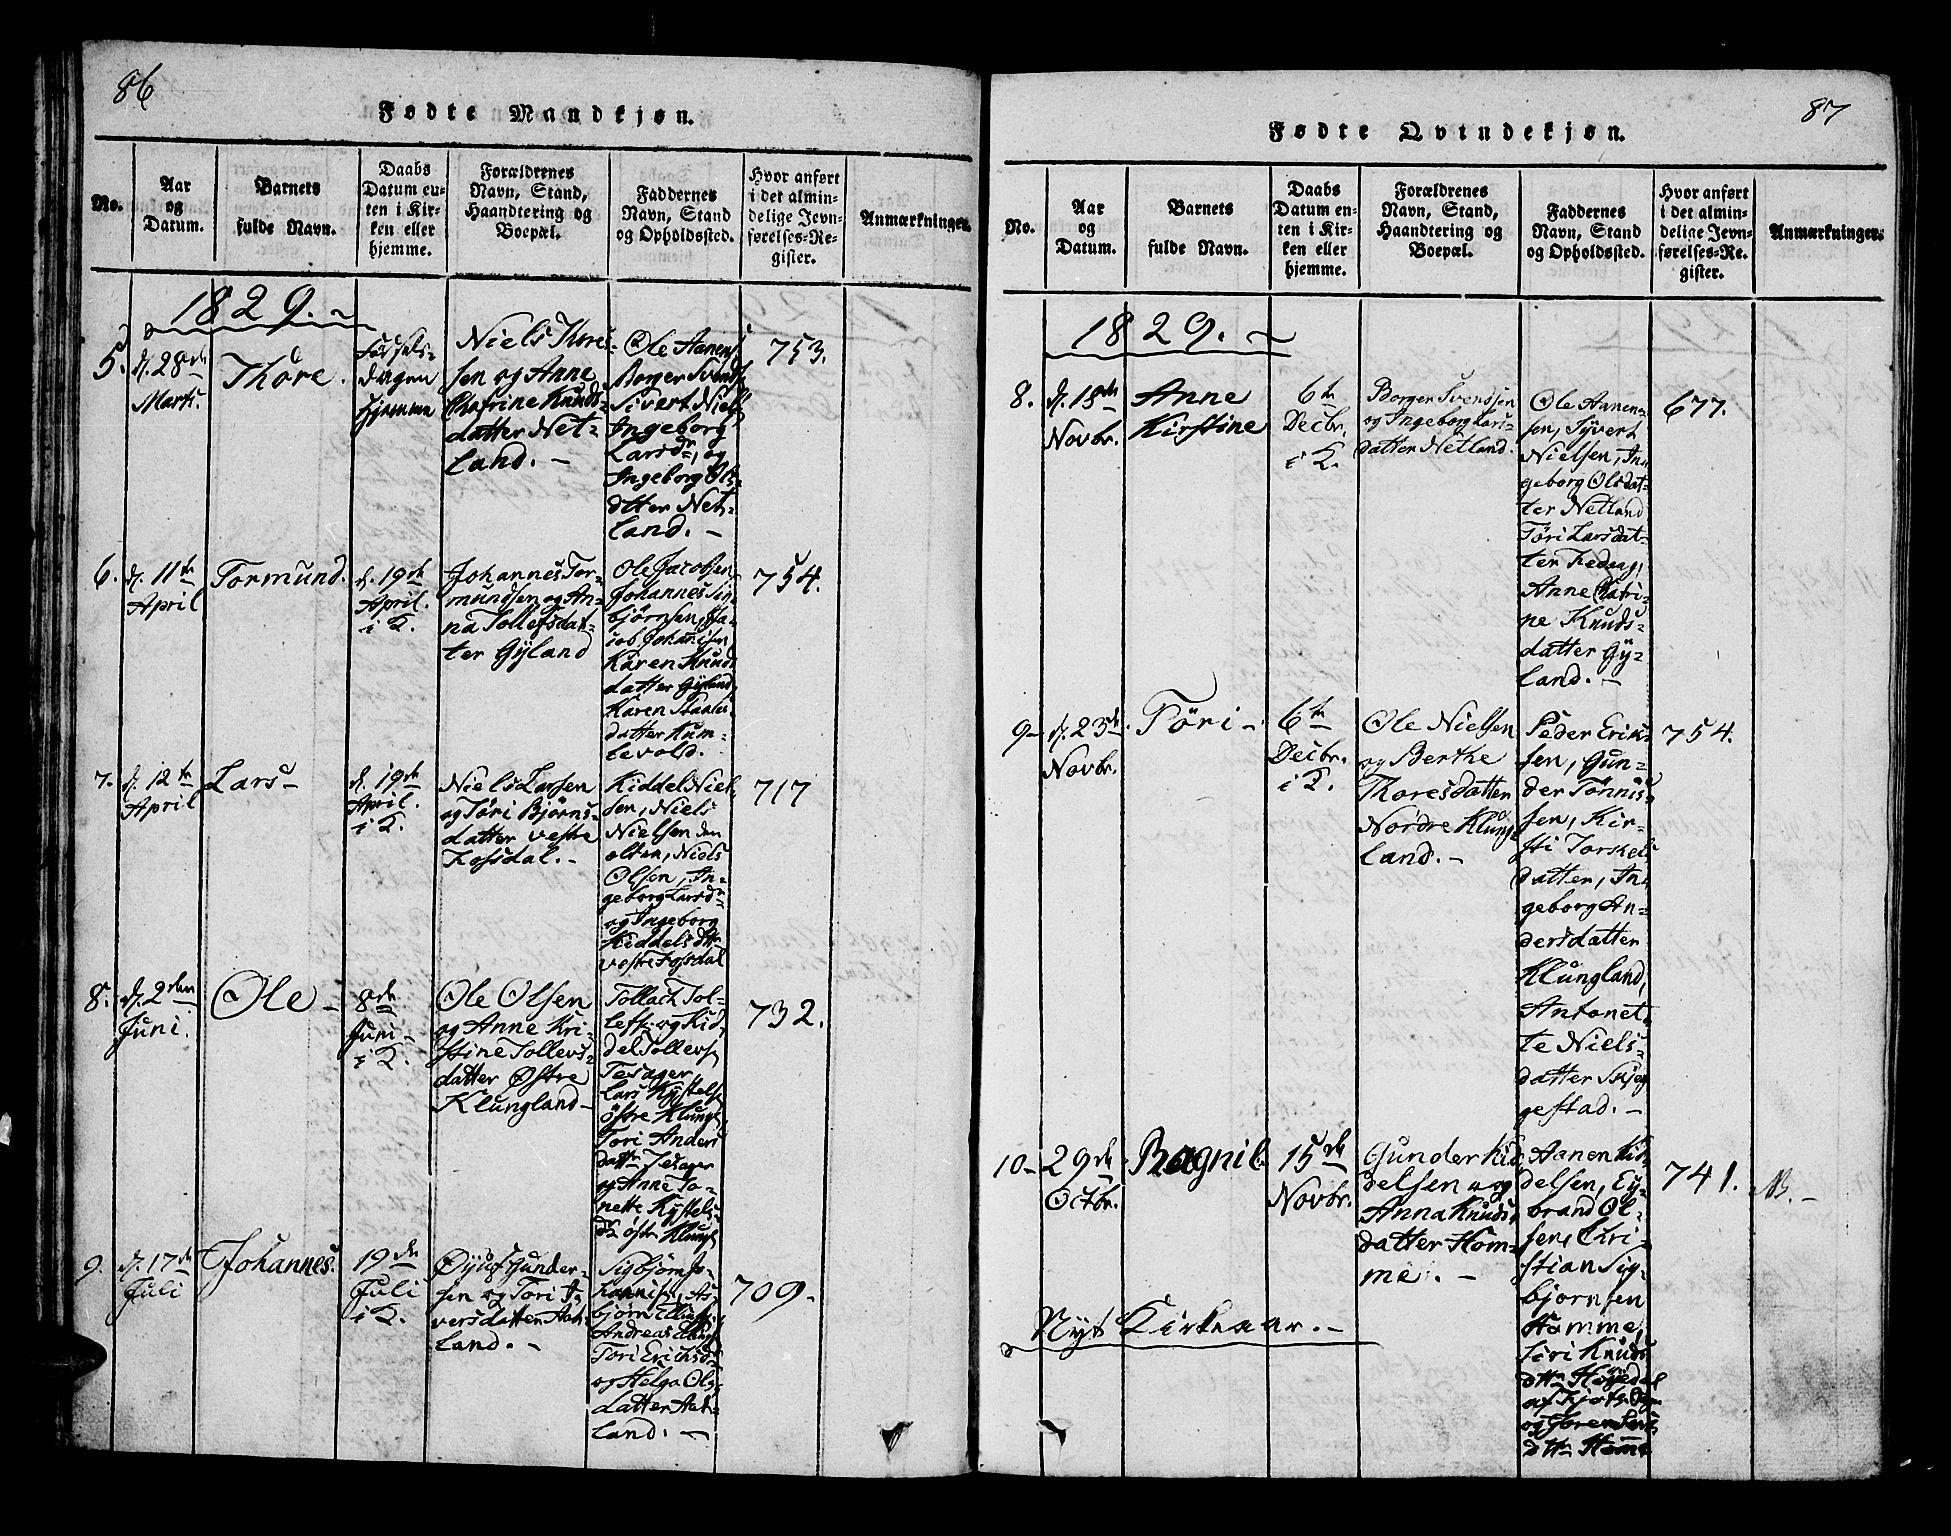 86
Fødte Mandkjøn.
No.
Aar
og
Datum.
Barnets
fulde Navn.
Daabs
Datum en-
ten i Kir-
ken eller
hjemme.
Forældrenes
Navn, Stand,
Haandtering og
Boepæl.
Faddernes
Navn, Stand
og Opholdssted.
Hvor anført
i det almin-
delige Jevn-
førelses-Re-
gister.
Anmærkninger.
1829.
5.
d. 28de
Marti.
Thore.
Fødsels-
dagen
hjemme
Niels Thores-
sen og Anne
Chatrine Knuds-
datter Net-
land.
Ole Aanens.
Borger Svends.
Sivert Niels.
Ingeborg
Larsdr, og
Ingeborg Ols-
datter Net-
land.
753.
6.
d. 11te
April
Tormund.
d. 19de
April.
i K.
Johannes Tor-
mundsen og An-
na Tollefsdat-
ter Gyland
Ole Jacobsen
Johannes Sin-
bjørnsen, Ja-
cob Johannsen
Karen Knuds
datter Gyland,
Karen Staalis-
datter Kum-
levold.
754.
7.
d. 12te
April
Lars
d. 19de
April.
i K.
Niels Larsen
og Tøri Bjørns-
datter vestre
Fosdal.
Kiddel Niel-
sen, Niels
Nielsen den
olten, Niels
Olsen, In-
geborg Larsdr
og Ingeborg
Kiddelsdtr
vestre Fosdal
717
8.
d. 2den
Juni.
Ole
8de
Juni
i K.
Ole Olsen
og Anne Kri-
stine Tollevs-
datter Østre
Klungland
Tollach Tol-
lefs. og Kid-
del Tollevs.
Tesager,
Lars Kjstels.
østre Klungl.
Tori Anders
dattr Tesager
og Anne To-
nette Kjstels-
dr østr Klungl.
732.
9.
d. 17de
Juli
Johannes.
19de
Juli
i K.
Øyuf Gunder-
sen og Tori I-
versdatter Aat-
land.
Sigbjørn Jo-
hannisn, As-
bjørn
Andreas
Tori Erichsdr
og Helga Ols-
datter Aat-
land.
709.
87
Fødte Qvindekjøn.
No.
Aar
og
Datum.
Barnets
fulde Navn.
Daabs
Datum en-
ten i Kir-
ken eller
hjemme.
Forældrenes
Navn, Stand,
Haandtering og
Boepæl.
Faddernes
Navn, Stand
og Opholdssted.
Hvor anført
i det almin-
delige Jevn-
førelses-Re-
gister.
Anmærkninger.
1829.
8.
d. 18de
Novbr.
Anne
Kirstine
6te
Decbr.
i K.
Borger Svendsen
og Ingeborg Lars-
datter Netland.
Ole Aanen-
sen, Syvert
Nielsen, In-
geborg Olsdat-
ter Netland
Tøri Larsdat-
ter Fedog,
Anne Chatri-
ne Knuds-
datter Gy-
land.
677.
9
d. 23de
Novbr.
Tøri
6te
Decbr.
i K.
Ole Nielsen
og Berthe
Thoresdatter
Nordre Klung-
land.
Peder Erik-
sen, Gun-
der Tønnis-
sen, Kir-
sti Torkels
datter, In-
geborg An-
dersdatter
Klungland,
Antonet-
te Niels-
datter Skjeg-
gestad.
754.
10
29de
Octbr.
Ragnil
15de
Novbr.
Gunder Kid-
delsen og
Anna Knuds-
datter Hom-
me.
Aanen Kid-
delsen, Ey-
brand Ol-
sen, Chri-
stian Sig-
bjørnsen
Homme,
Siri Knuds
dttr Høgedal
af
og Joren
dttr Homme
741.
NB.
Nyt Kirkeaar.